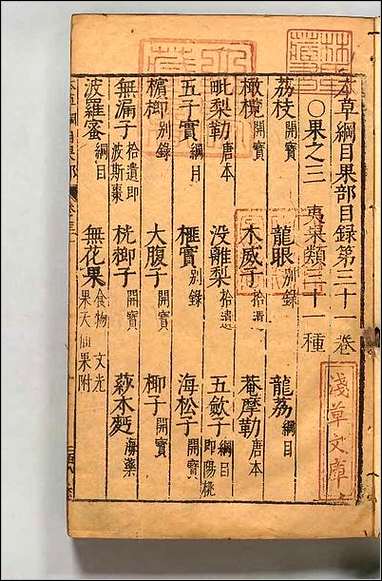 本草綱目果部目録第三十一卷
○果之三 夷菓類三十一種
荔枝開寶 龍眼别録 龍荔綱目
橄欖開寶 木威子拾遺 菴摩勒唐本
毗梨勒唐本 没離梨拾遺 五歛子綱目即陽桃
五子實綱目 榧實别録 海松子開寶
檳榔别録 大腹子開寶 椰子開寶
無漏子拾遺即波斯棗 桄榔子開寶 莎木麪海藥
波羅蜜綱目 無花果食物 文光果天仙果附
淺草文庫